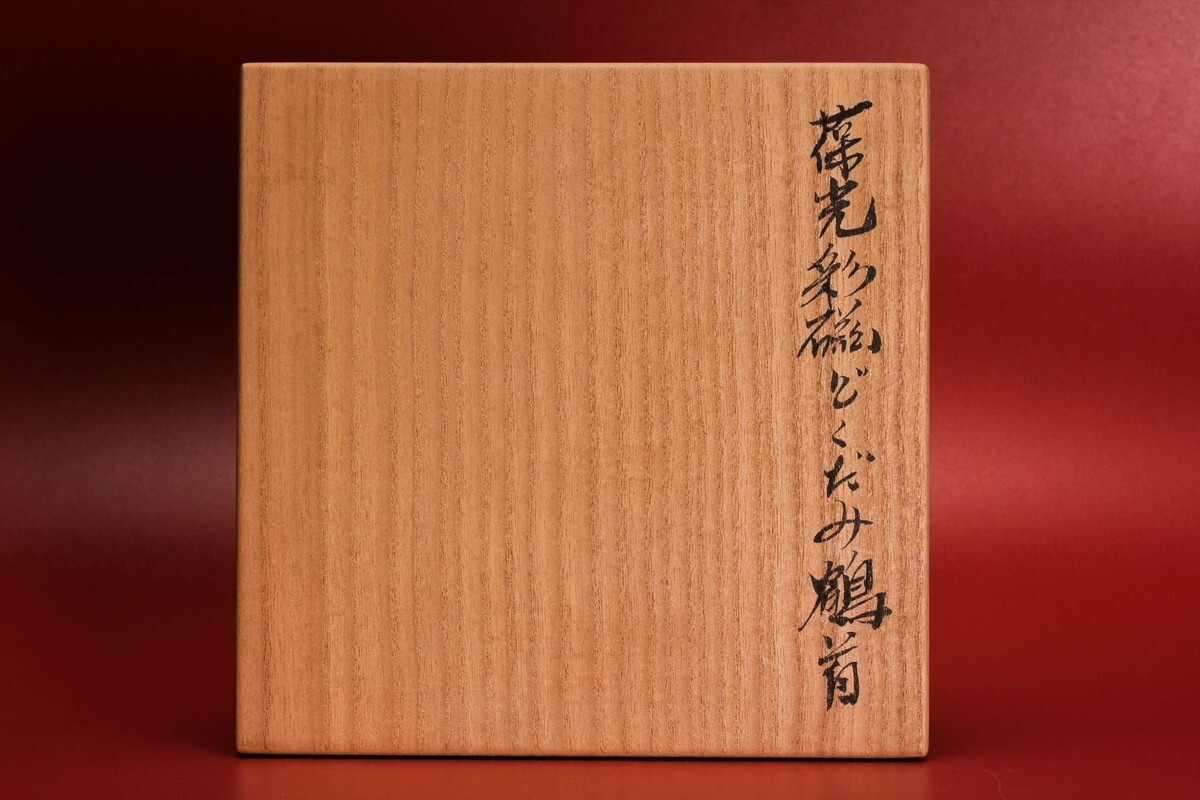 葆光彩磁どくだみ鶴首